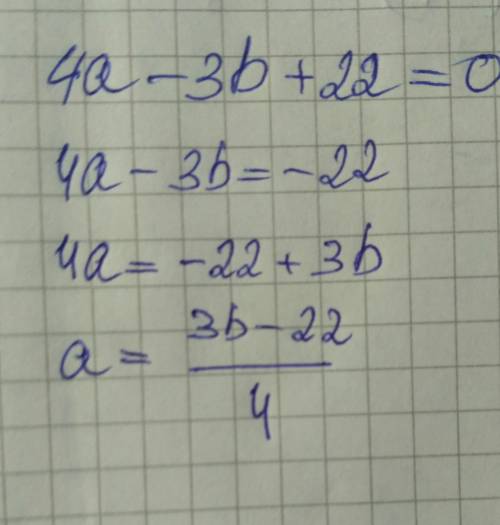 4a - 3b + 22 = 0
4a - 3b = -22
4a = -22 + 3b
a = (3b - 22)/4